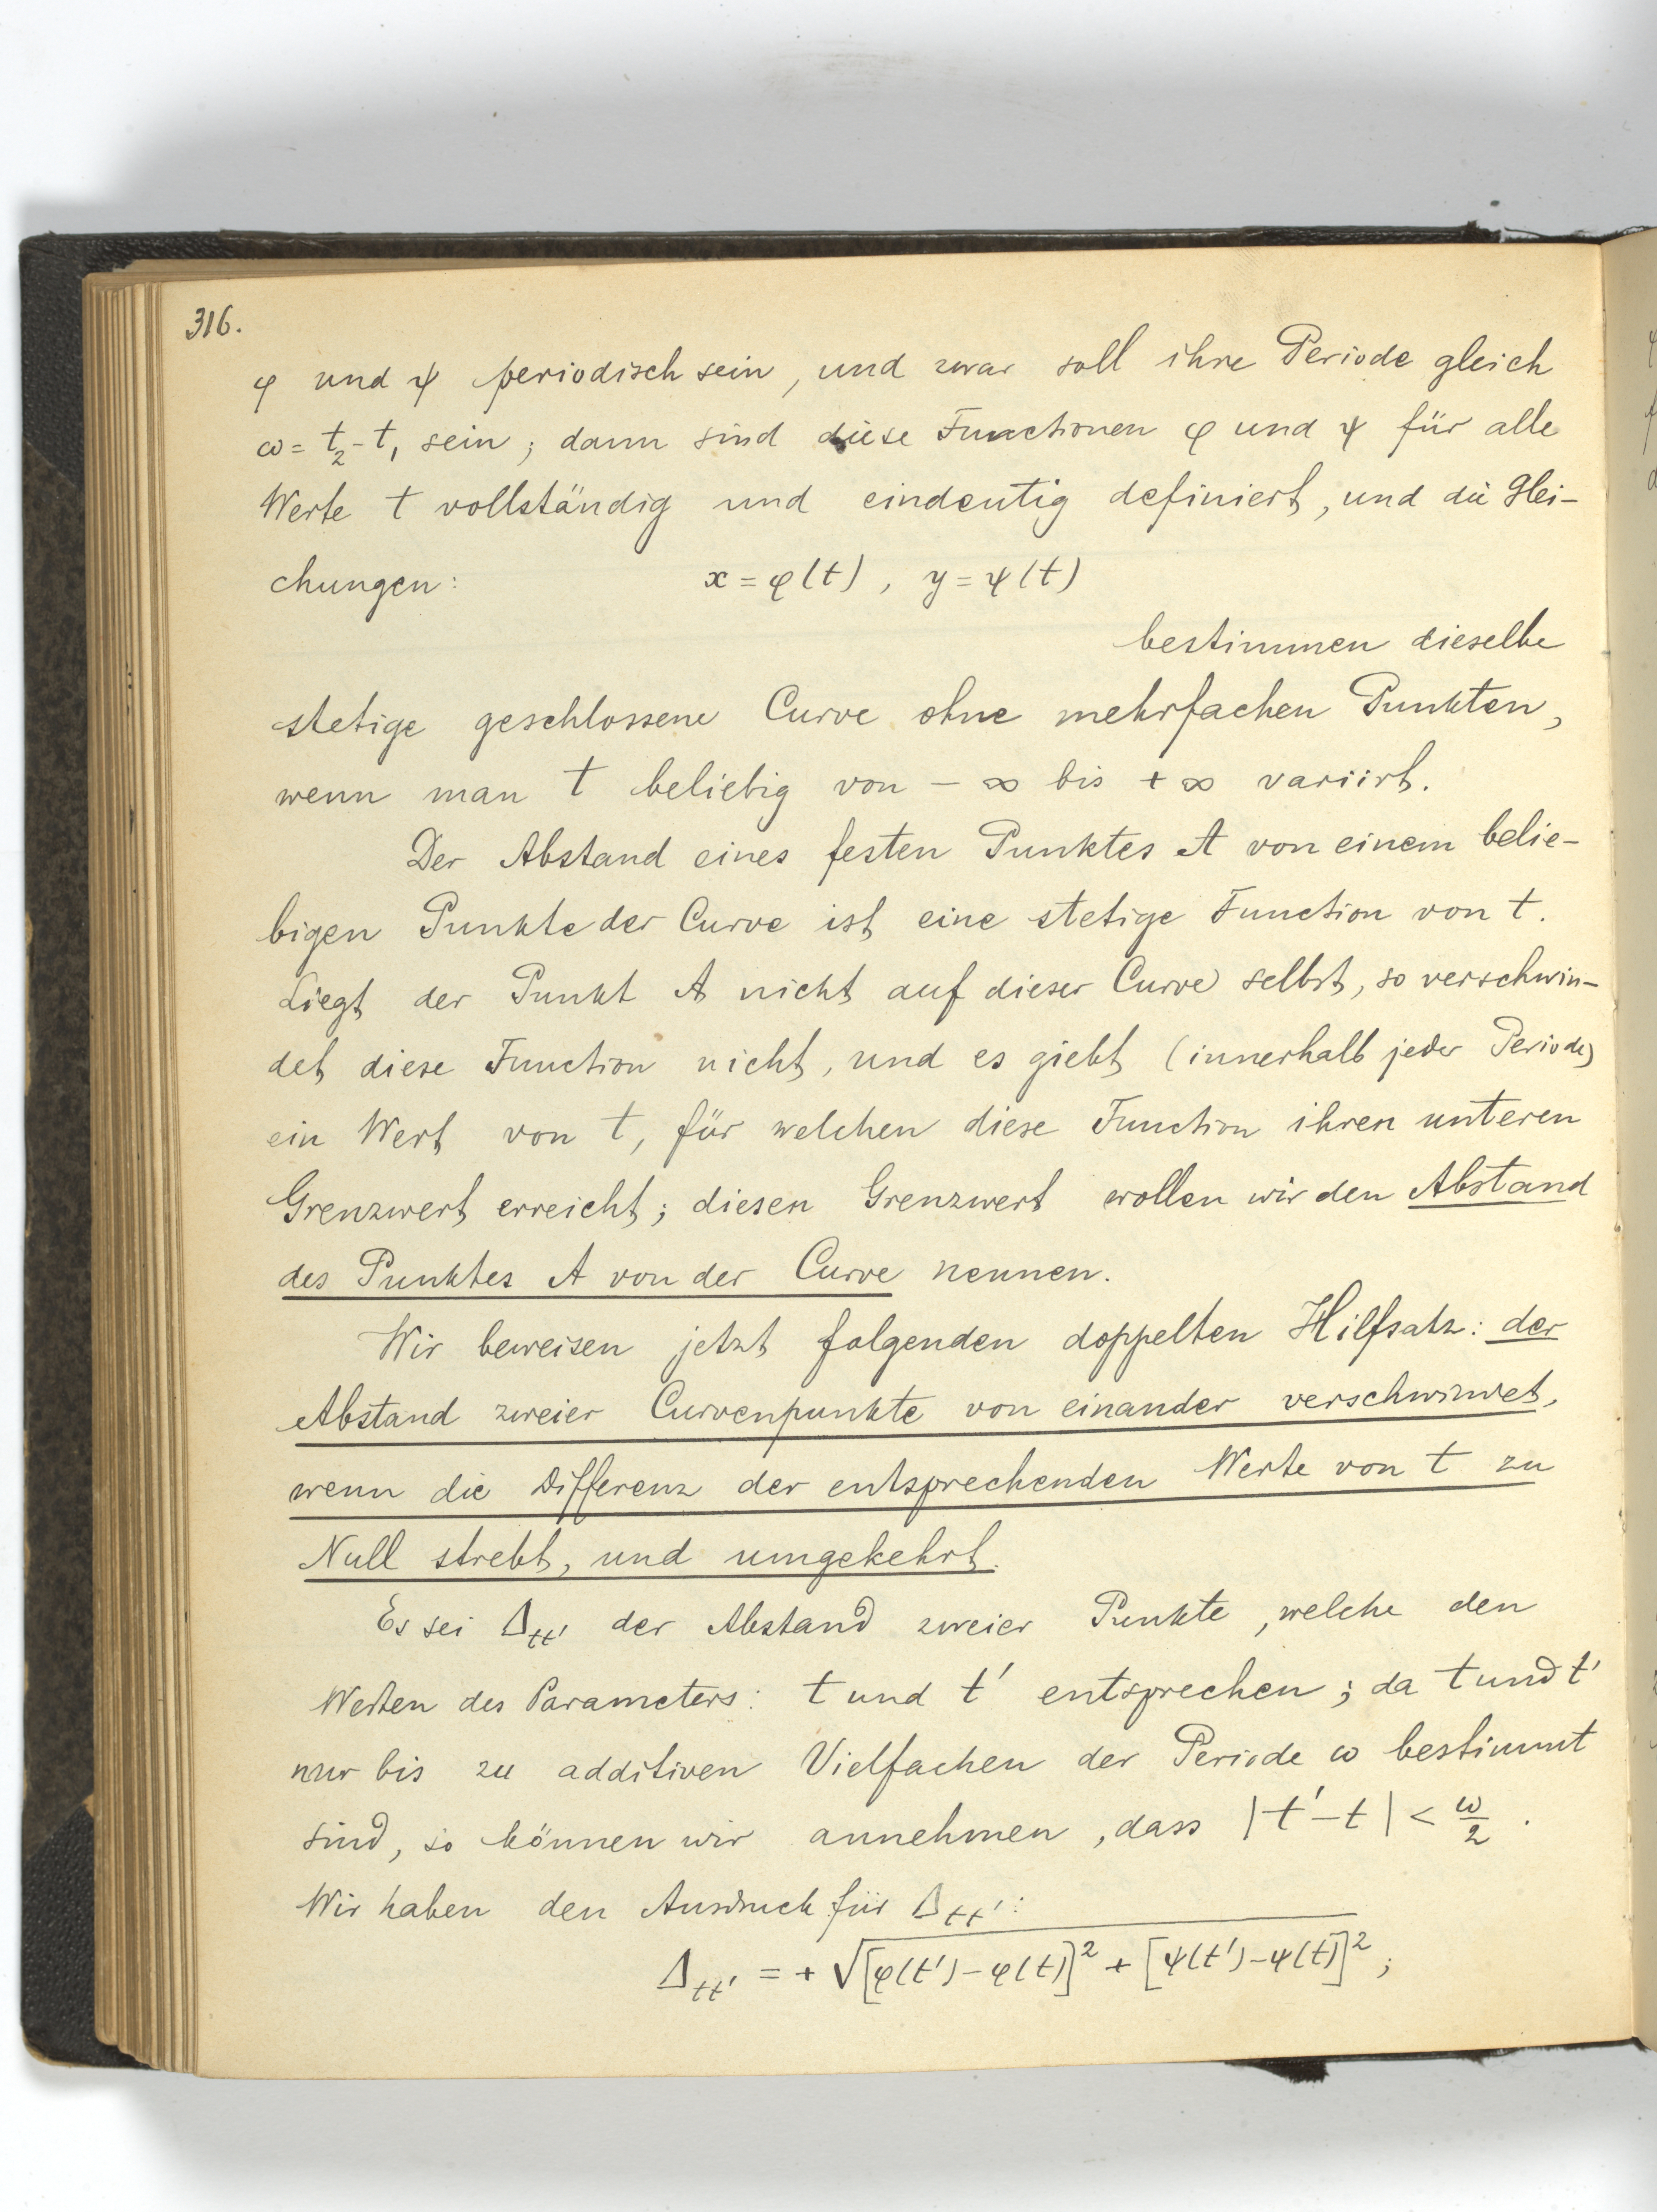 316.
φ und ψ periodisch sein, und zwar soll ihre Periode gleich
ω = t₂ - t₁ sein; dann sind diese Functionen φ und ψ für alle
Werte t vollständig und eindeutig definiert, und die Glei-
chungen: x = φ(t), y = ψ(t)
bestimmen dieselbe
stetige geschlossene Curve ohne mehrfachen Punkten,
wenn man t beliebig von - ∞ bis + ∞ variirt.
Der Abstand eines festen Punktes A von einem belie-
bigen Punkte der Curve ist eine stetige Function von t.
Liegt der Punkt A nicht auf dieser Curve selbst, so verschwin-
det diese Function nicht, und es giebt (innerhalb jeder Periode)
ein Wert von t, für welchen diese Function ihren unteren
Grenzwert erreicht; diesen Grenzwert wollen wir den Abstand
des Punktes A von der Curve nennen.
Wir beweisen jetzt folgenden doppelten Hilfsatz: der
Abstand zweier Curvenpunkte von einander verschwindet,
wenn die Differenz der entsprechenden Werte von t zu
Null strebt, und umgekehrt.
Es sei Δtt' der Abstand zweier Punkte, welche den
Werten des Parameters: t und t' entsprechen; da t und t'
nur bis zu additiven Vielfachen der Periode ω bestimmt
sind, so können wir annehmen, dass |t' - t| < ω/2.
Wir haben den Ausdruck für Δtt':
Δtt' = + √[φ(t') - φ(t)]² + [ψ(t') - ψ(t)]²;